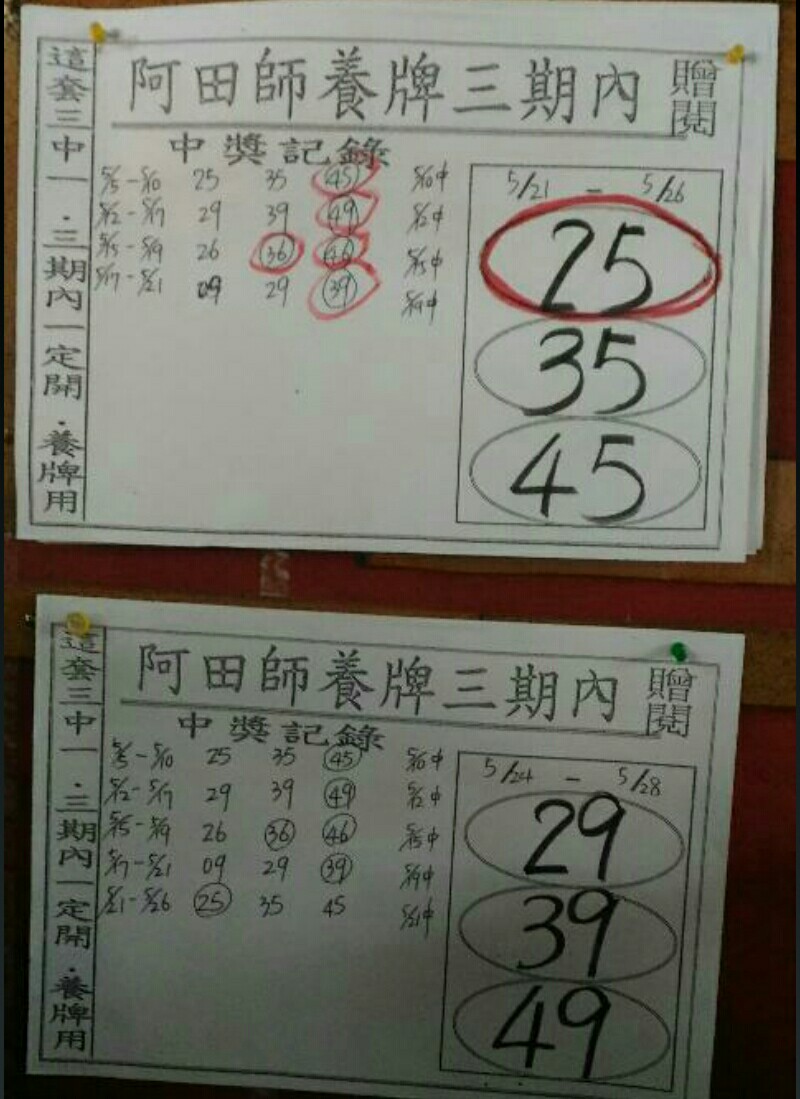 阿田師養牌三期內
贈閱
這套三中一．三期內一定開．養牌用
中獎記錄
5/5-5/10 25 35 45 5/10中
5/12-5/17 29 39 49 5/12中
5/15-5/19 26 36 46 5/15中
5/17-5/21 09 29 39 5/19中
5/21 - 5/26
25
35
45
阿田師養牌三期內
贈閱
這套三中一．三期內一定開．養牌用
中獎記錄
5/5-5/10 25 35 45 5/10中
5/12-5/17 29 39 49 5/12中
5/15-5/19 26 36 46 5/15中
5/17-5/21 09 29 39 5/19中
5/21-5/26 25 35 45 5/21中
5/24 - 5/28
29
39
49